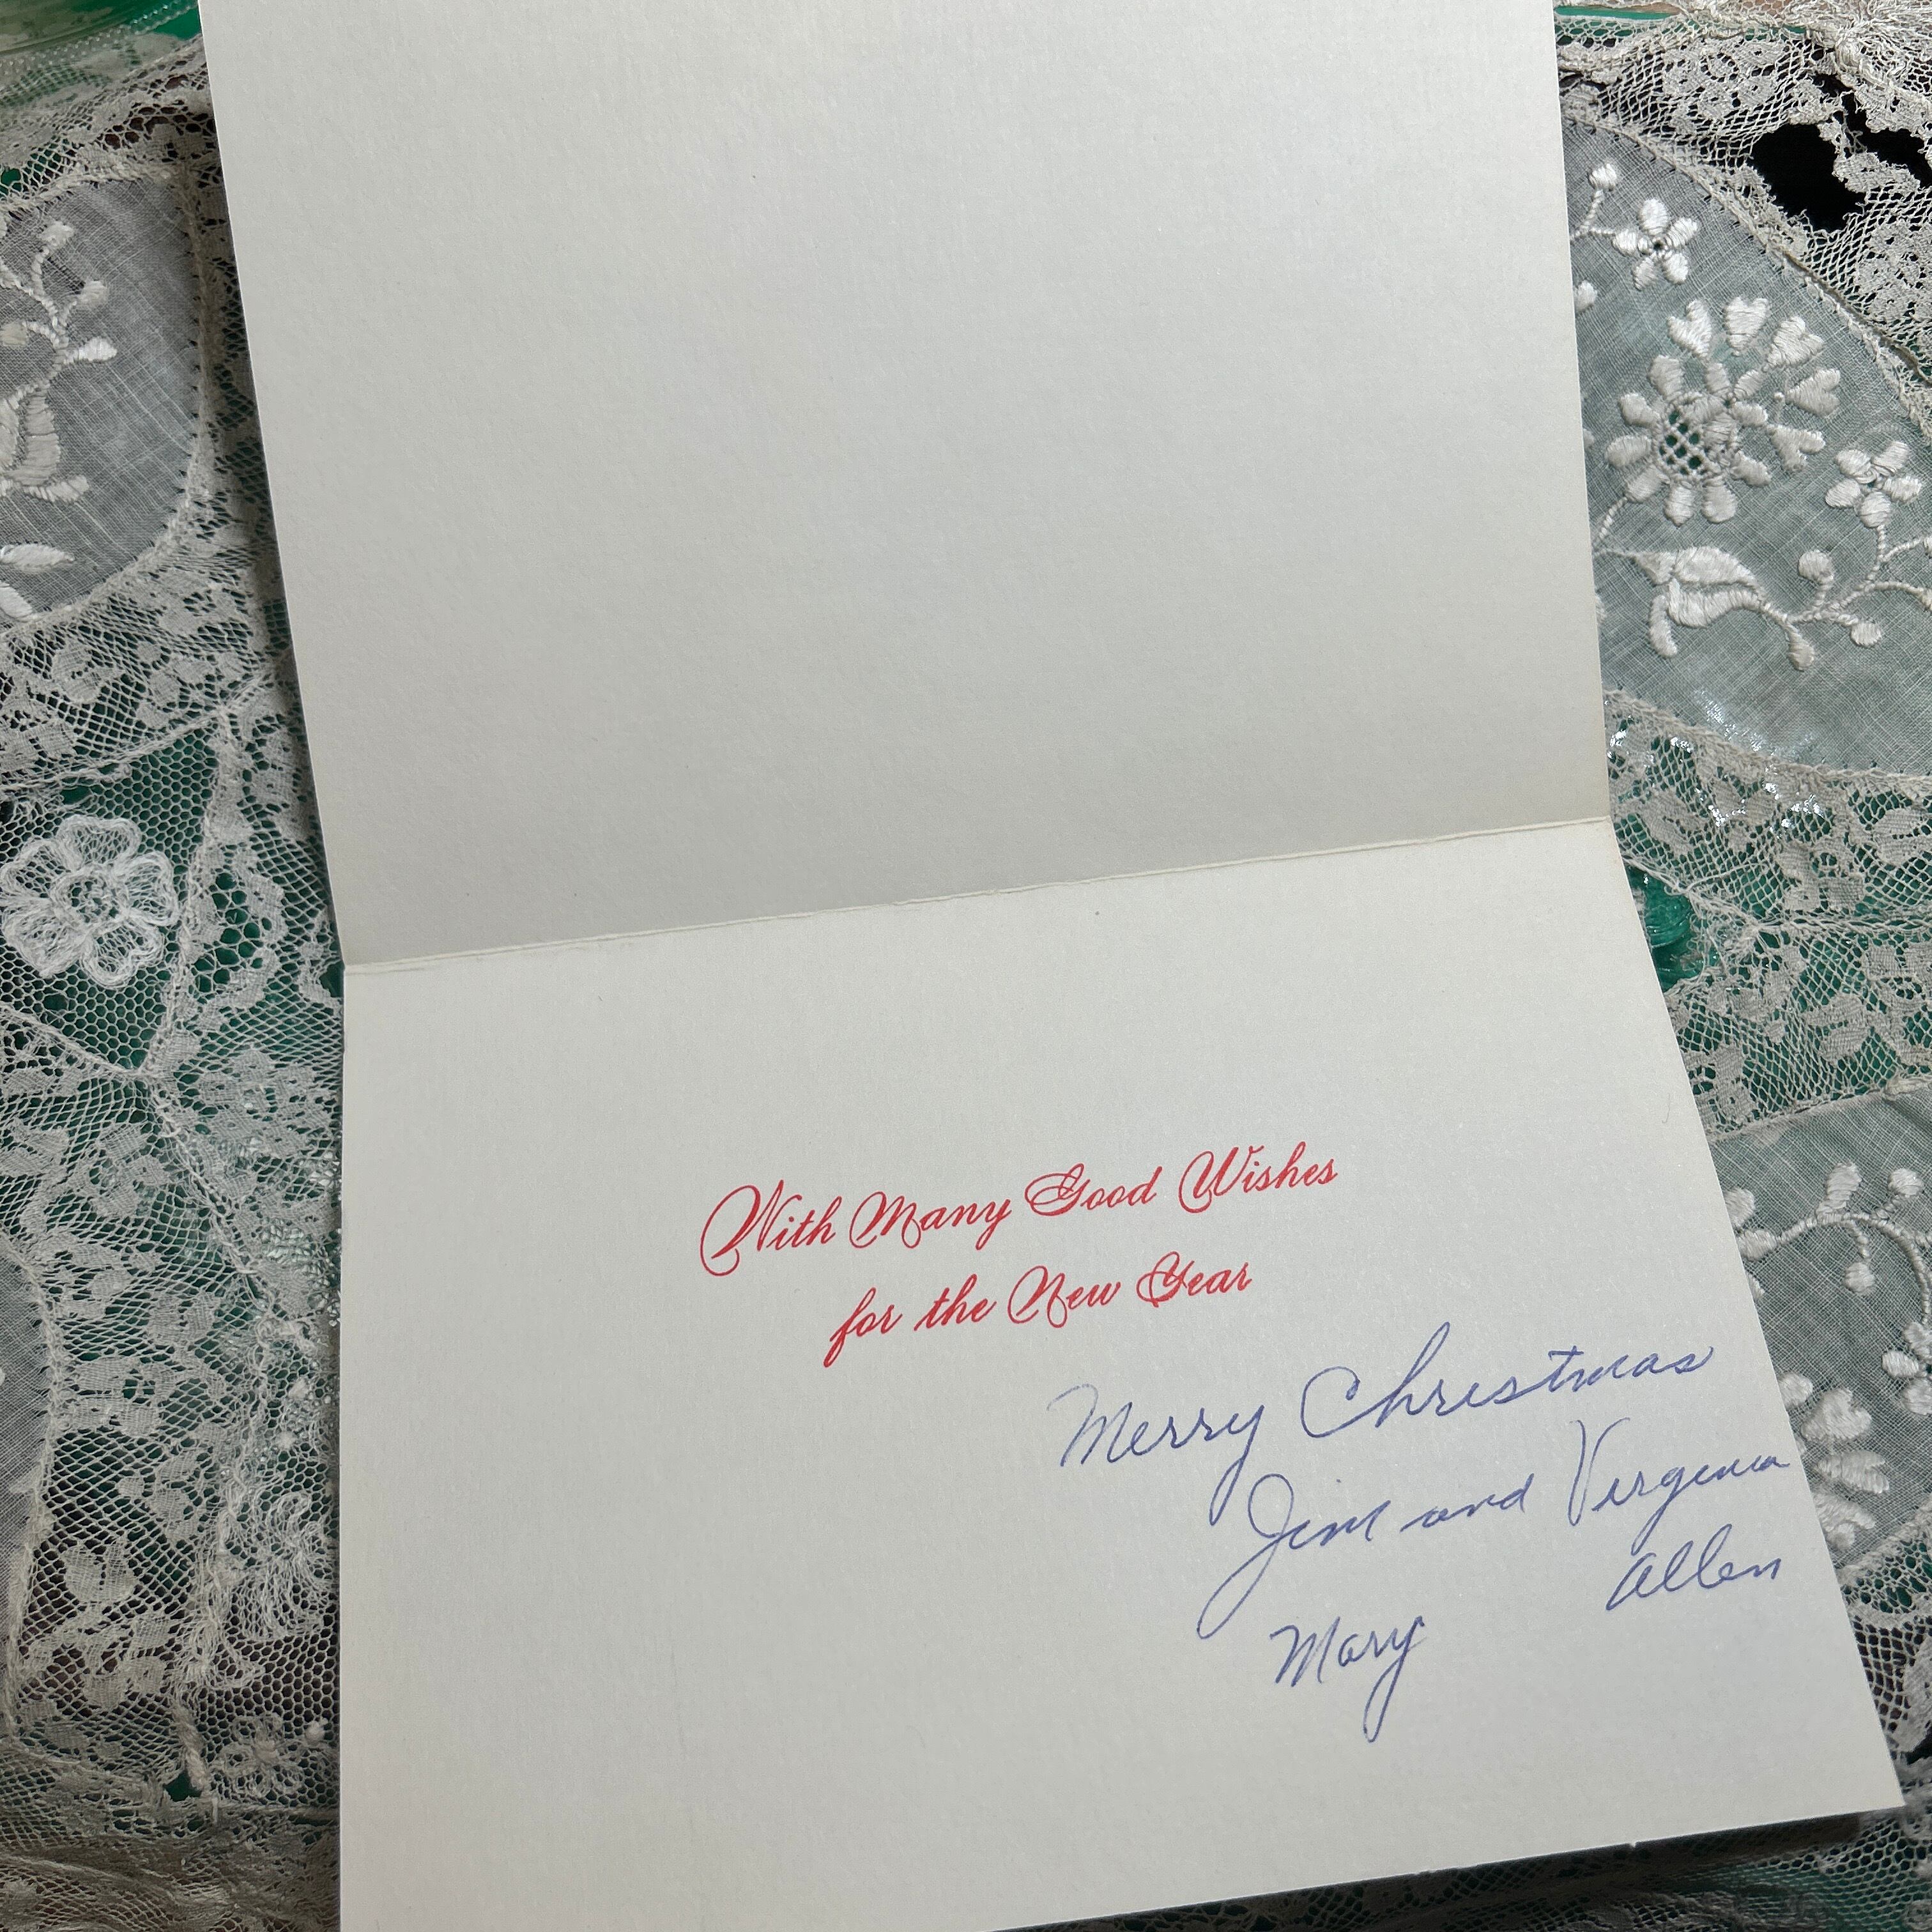 With Many Good Wishes
for the New Year
Merry Christmas
Jim and Virginia
Allen
Mary